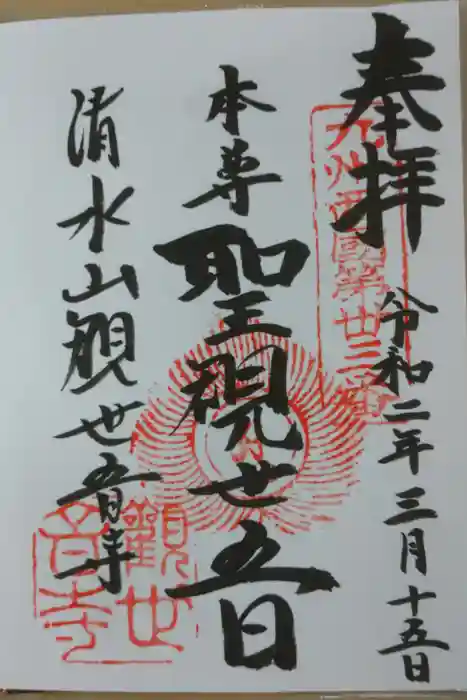 奉拝
九州西國第卅三番
令和二年三月十五日
本尊
聖観世五日
清水山観世音寺
觀世音寺